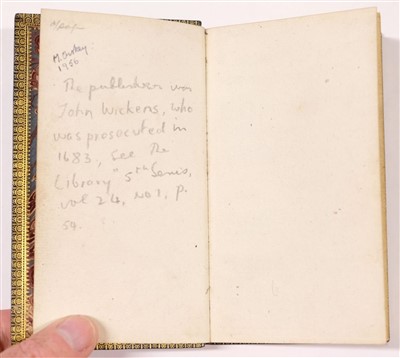 1986
The publisher was
John Wickens, who
was prosecuted in
1683, see the
Library" 5th Series,
vol 26, no 1, p.
59.